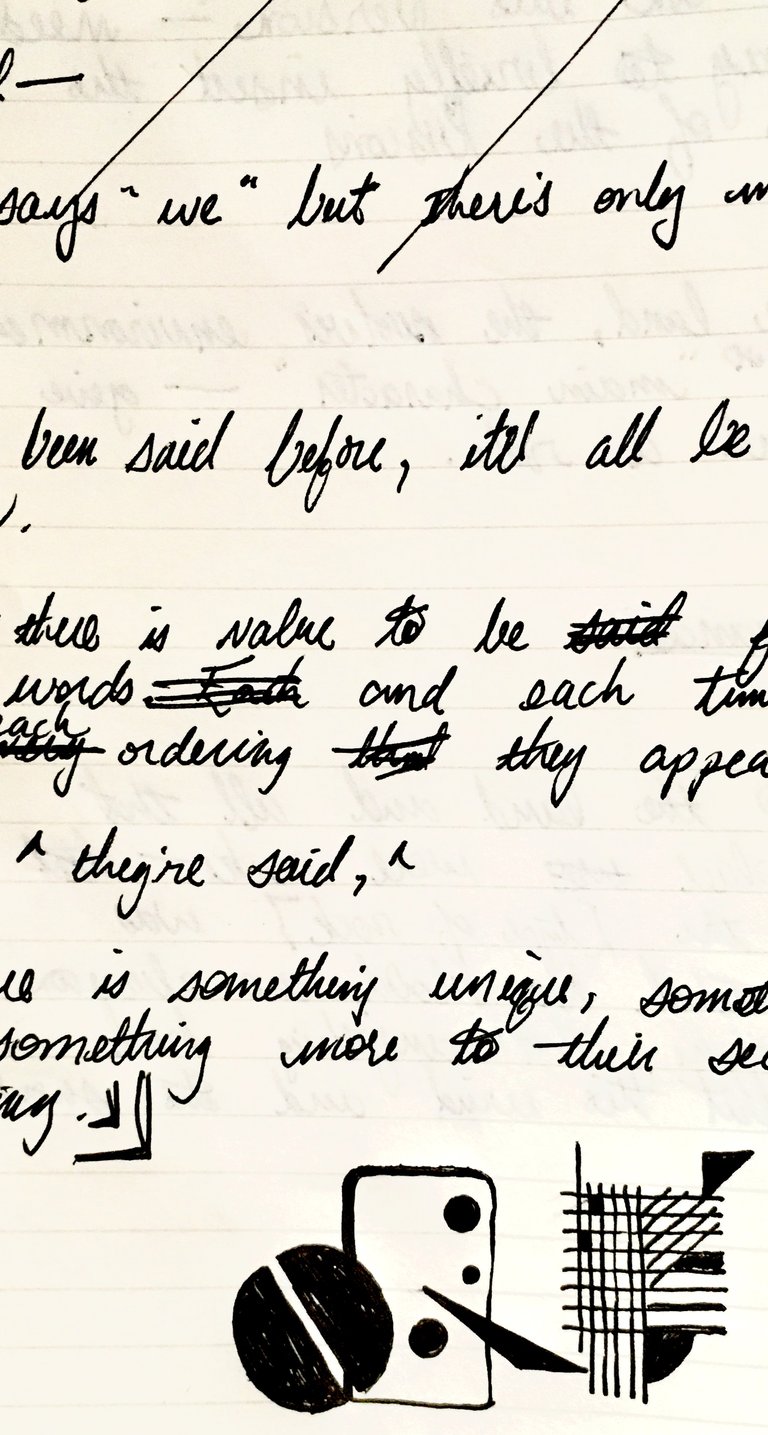 says "we" but there's only
been said before, it'd all be
there is value to be said
words Each and each
each
every ordering that they
^ they're said, ^
is something unique,
something more to their